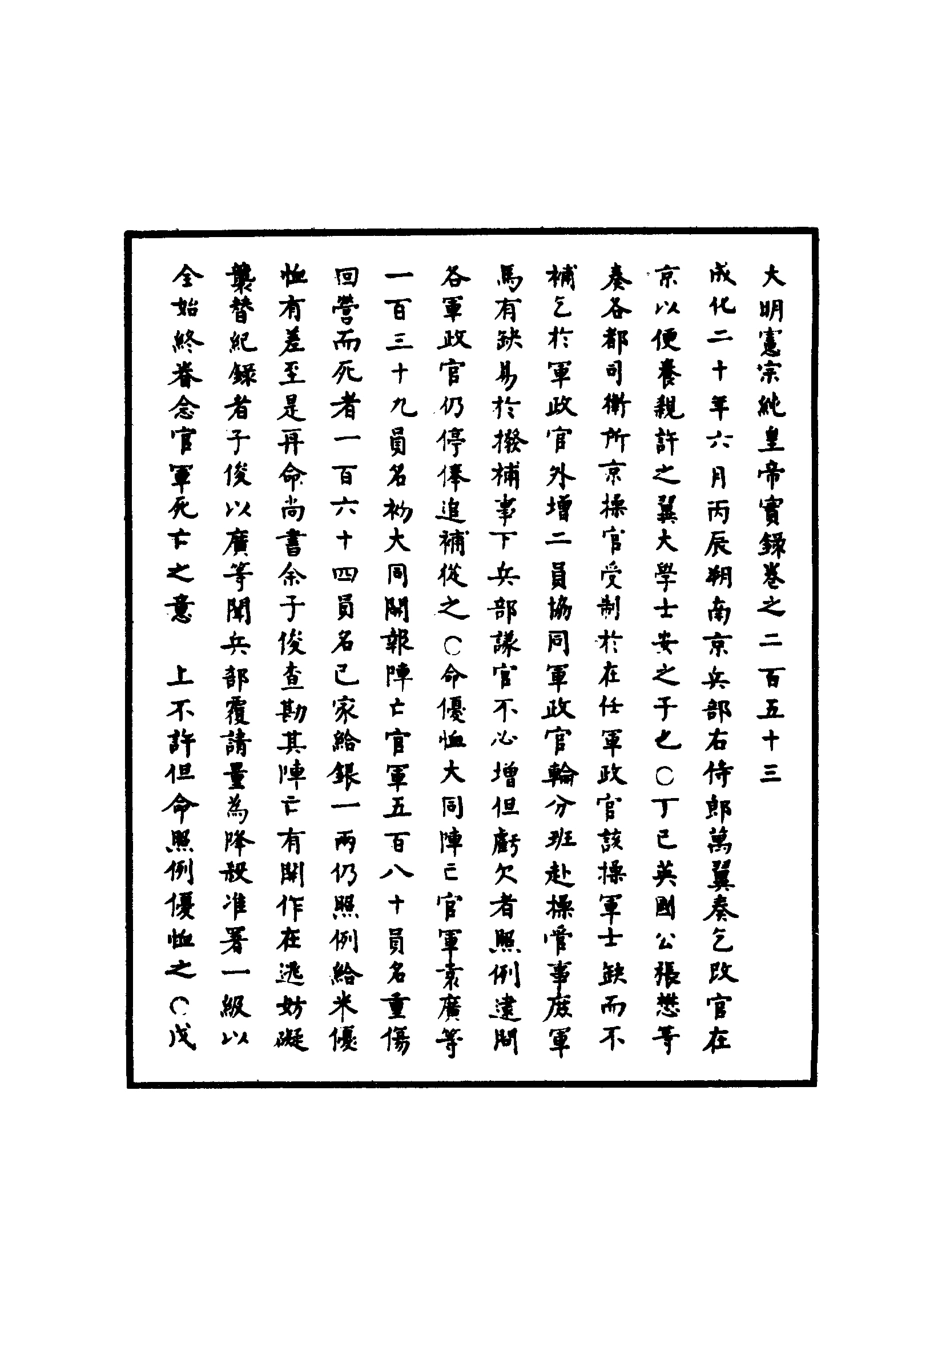 大明憲宗純皇帝實錄卷之二百五十三
成化二十年六月丙辰朔南京兵部右侍郎萬翼奏乞改官在
京以便養親許之翼大學士安之子也○丁巳英國公張懋等
奏各都司衛所京操官受制於在任軍政官該操軍士缺而不
補乞於軍政官外增二員協同軍政官輪分班赴操管事庶軍
馬有缺易於撥補事下兵部議官不必增但虧欠者照例逮問
各軍政官仍停俸追補從之○命優恤大同陣亡官軍袁廣等
一百三十九員名初大同開報陣亡官軍五百八十員名重傷
回營而死者一百六十四員名已家給銀一兩仍照例給米優
恤有差至是再命尚書余子俊查勘其陣亡有開作在逃妨礙
襲替紀錄者子俊以廣等聞兵部覆請量為降殺准署一級以
全始終眷念官軍死亡之意　上不許但命照例優恤之○戊